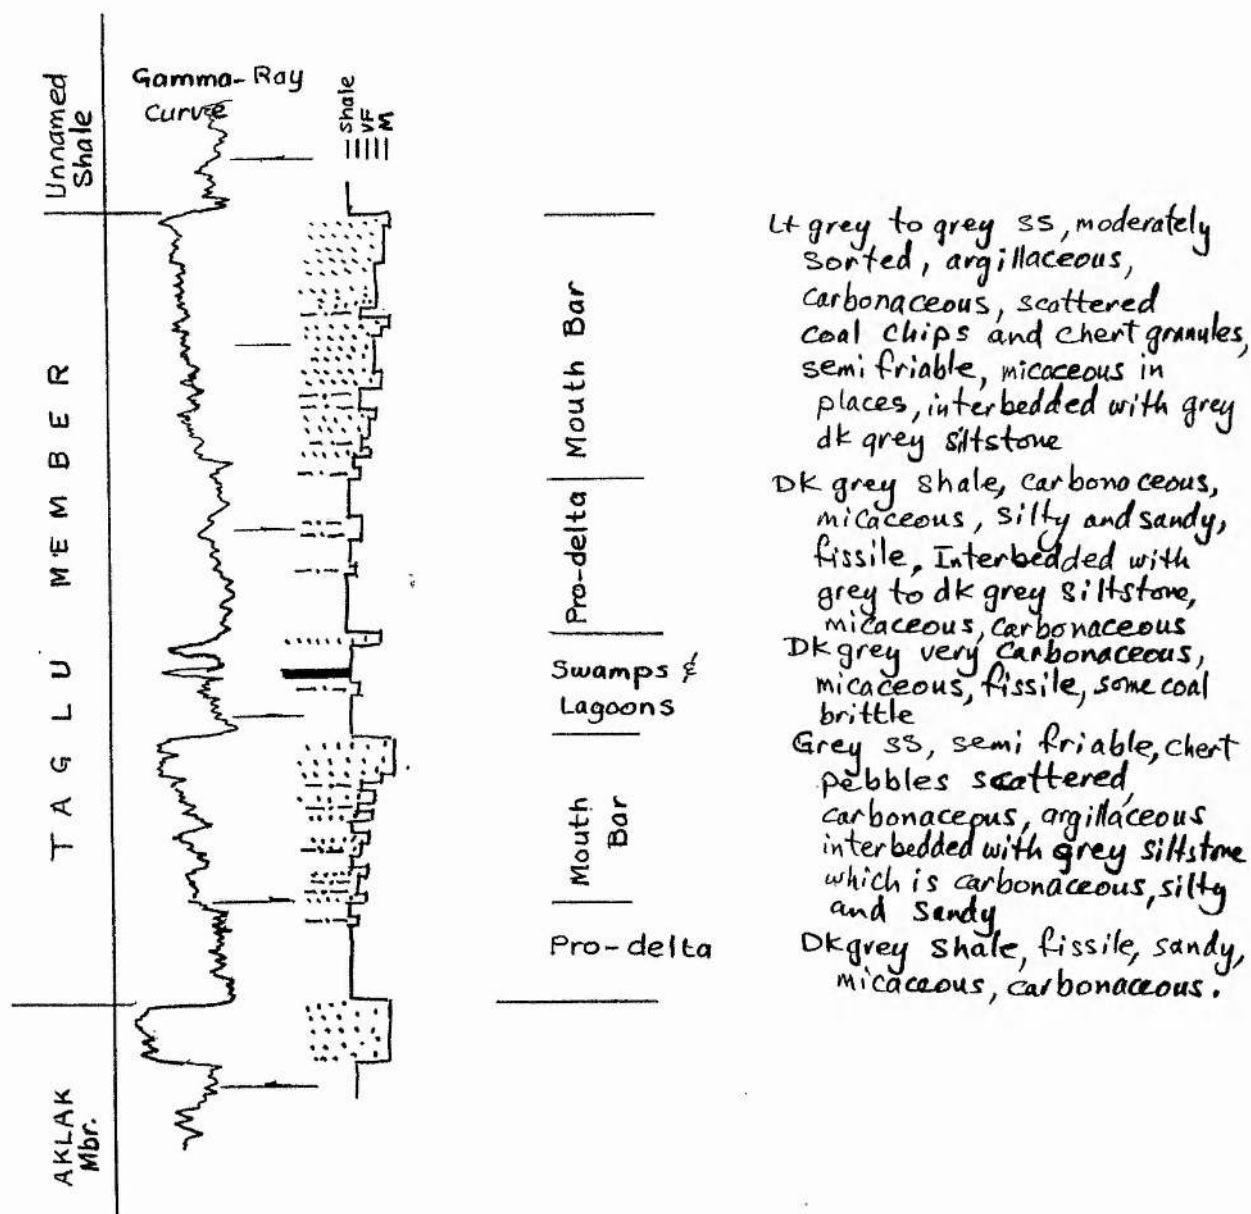 Unnamed
Shale
Gamma-Ray
Curve
Shale
VF
M
TAGLU MEMBER
AKLAK
Mbr.
Mouth Bar
Pro-delta
Swamps &
Lagoons
Mouth
Bar
Pro-delta
Lt grey to grey ss, moderately
sorted, argillaceous,
carbonaceous, scattered
coal chips and chert granules,
semi friable, micaceous in
places, interbedded with grey
dk grey siltstone
DK grey shale, carbonoceous,
micaceous, silty and sandy,
fissile, Interbedded with
grey to dk grey siltstone,
micaceous, carbonaceous
DK grey very carbonaceous,
micaceous, fissile, some coal
brittle
Grey ss, semi friable, chert
pebbles scattered,
carbonaceous, argillaceous
interbedded with grey siltstone
which is carbonaceous, silty
and sandy
DK grey shale, fissile, sandy,
micaceous, carbonaceous.